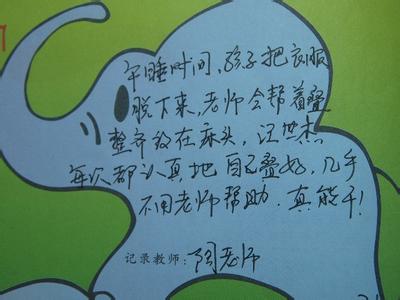 午睡时间，孩子把衣服
脱下来，老师会帮着叠
整齐放在床头，汪世杰
每次都认真地自己叠好，几乎
不用老师帮助．真能干！
记录教师：陶老师